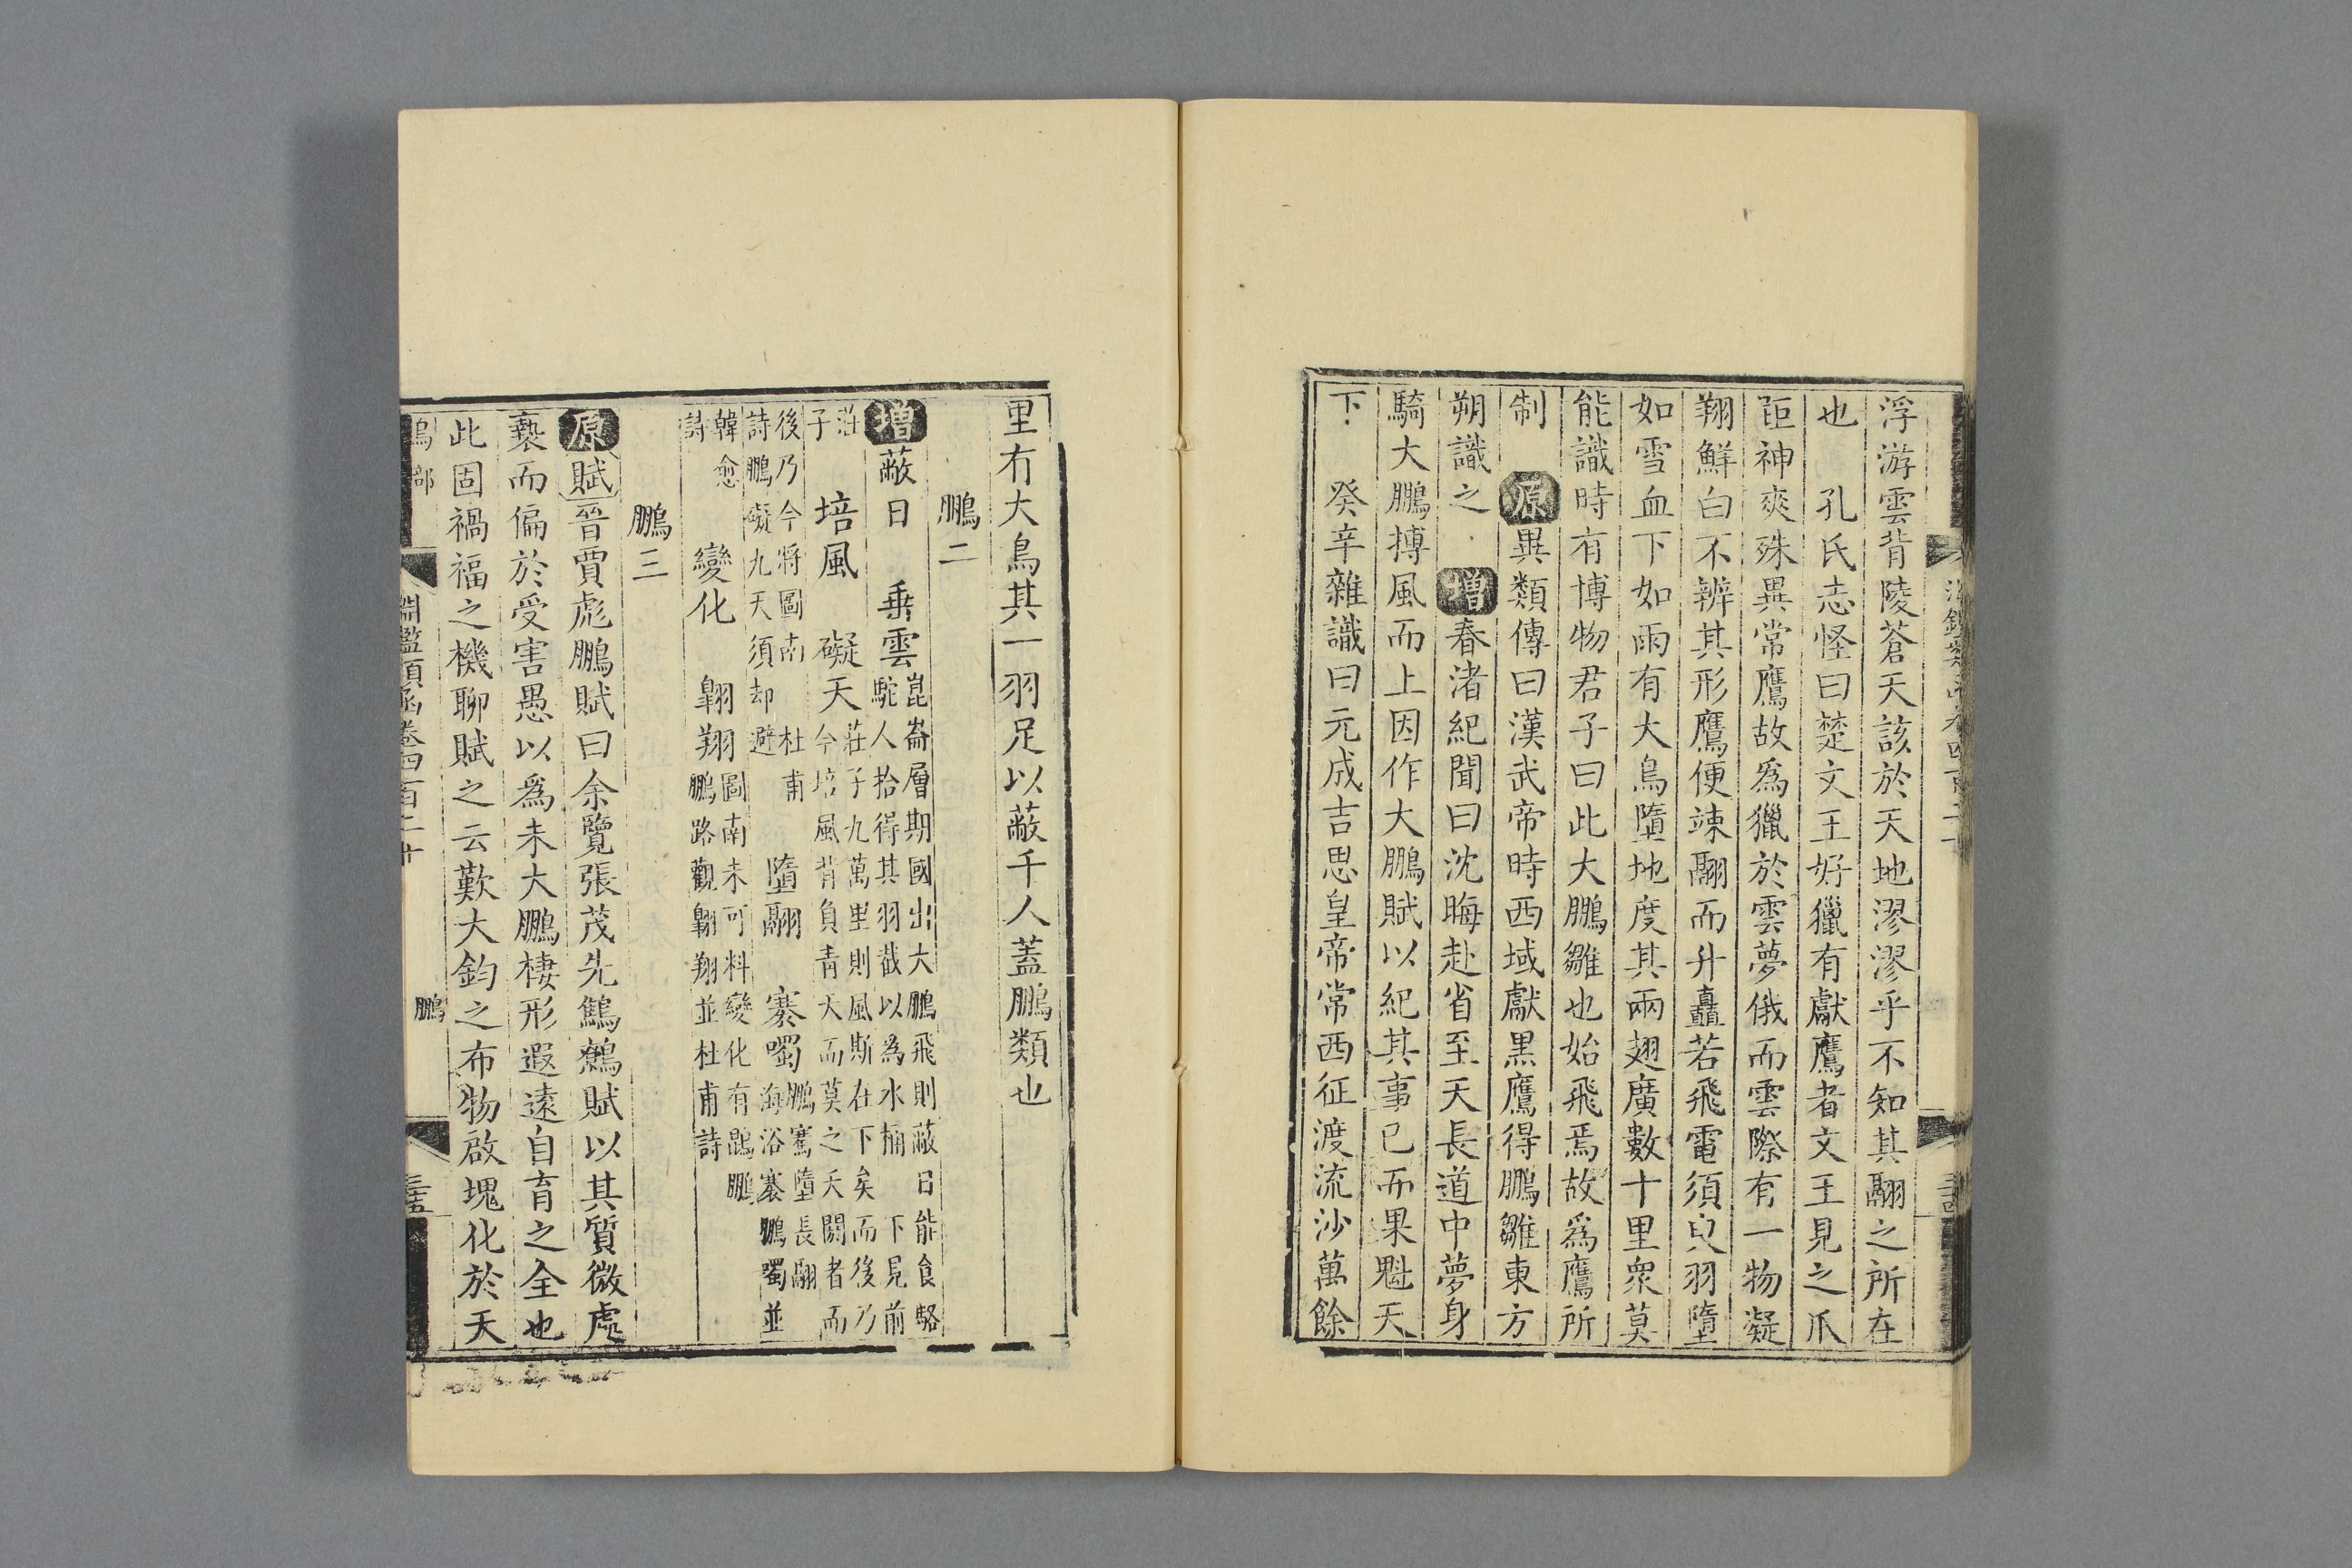 浮游雲背陵蒼天該於天地漻漻乎不知其翮之所在
也　孔氏志怪曰楚文王好獵有獻鷹者文王見之爪
距神爽殊異常鷹故爲獵於雲夢俄而雲際有一物凝
翔鮮白不辨其形鷹便竦翮而升矗若飛電須臾羽墮
如雪血下如雨有大鳥墮地度其兩翅廣數十里衆莫
能識時有博物君子曰此大鵬雛也始飛焉故爲鷹所
制　原異類傳曰漢武帝時西域獻黑鷹得鵬雛東方
朔識之　增春渚紀聞曰沈晦赴省至天長道中夢身
騎大鵬摶風而上因作大鵬賦以紀其事已而果魁天
下　癸辛雜識曰元成吉思皇帝常西征渡流沙萬餘
里有大鳥其一羽足以蔽千人蓋鵬類也
鵬二
增蔽日　垂雲崑崙層期國出大鵬飛則蔽日能食駱
駝人拾得其羽截以為水桶　下見前
莊子　培風　礙天莊子九萬里則風斯在下矣而後乃
今培風背負青天而莫之夭閼者而
後乃今將圖南　杜甫
詩鵬礙九天須却避　墮翮　褰噣鵬騫墮長翮
海浴褰鵬噣並
韓愈詩　變化　翺翔圖南未可料變化有鵾鵬
鵬路觀翺翔並杜甫詩
鵬三
原賦晉賈彪鵬賦曰余覽張茂先鷦鷯賦以其質微處
褻而偏於受害愚以爲未大鵬棲形遐遠自育之全也
此固禍福之機聊賦之云歎大鈞之布物啟塊化於天
鳥部　淵鑑類函卷四百二十　鵬　三五